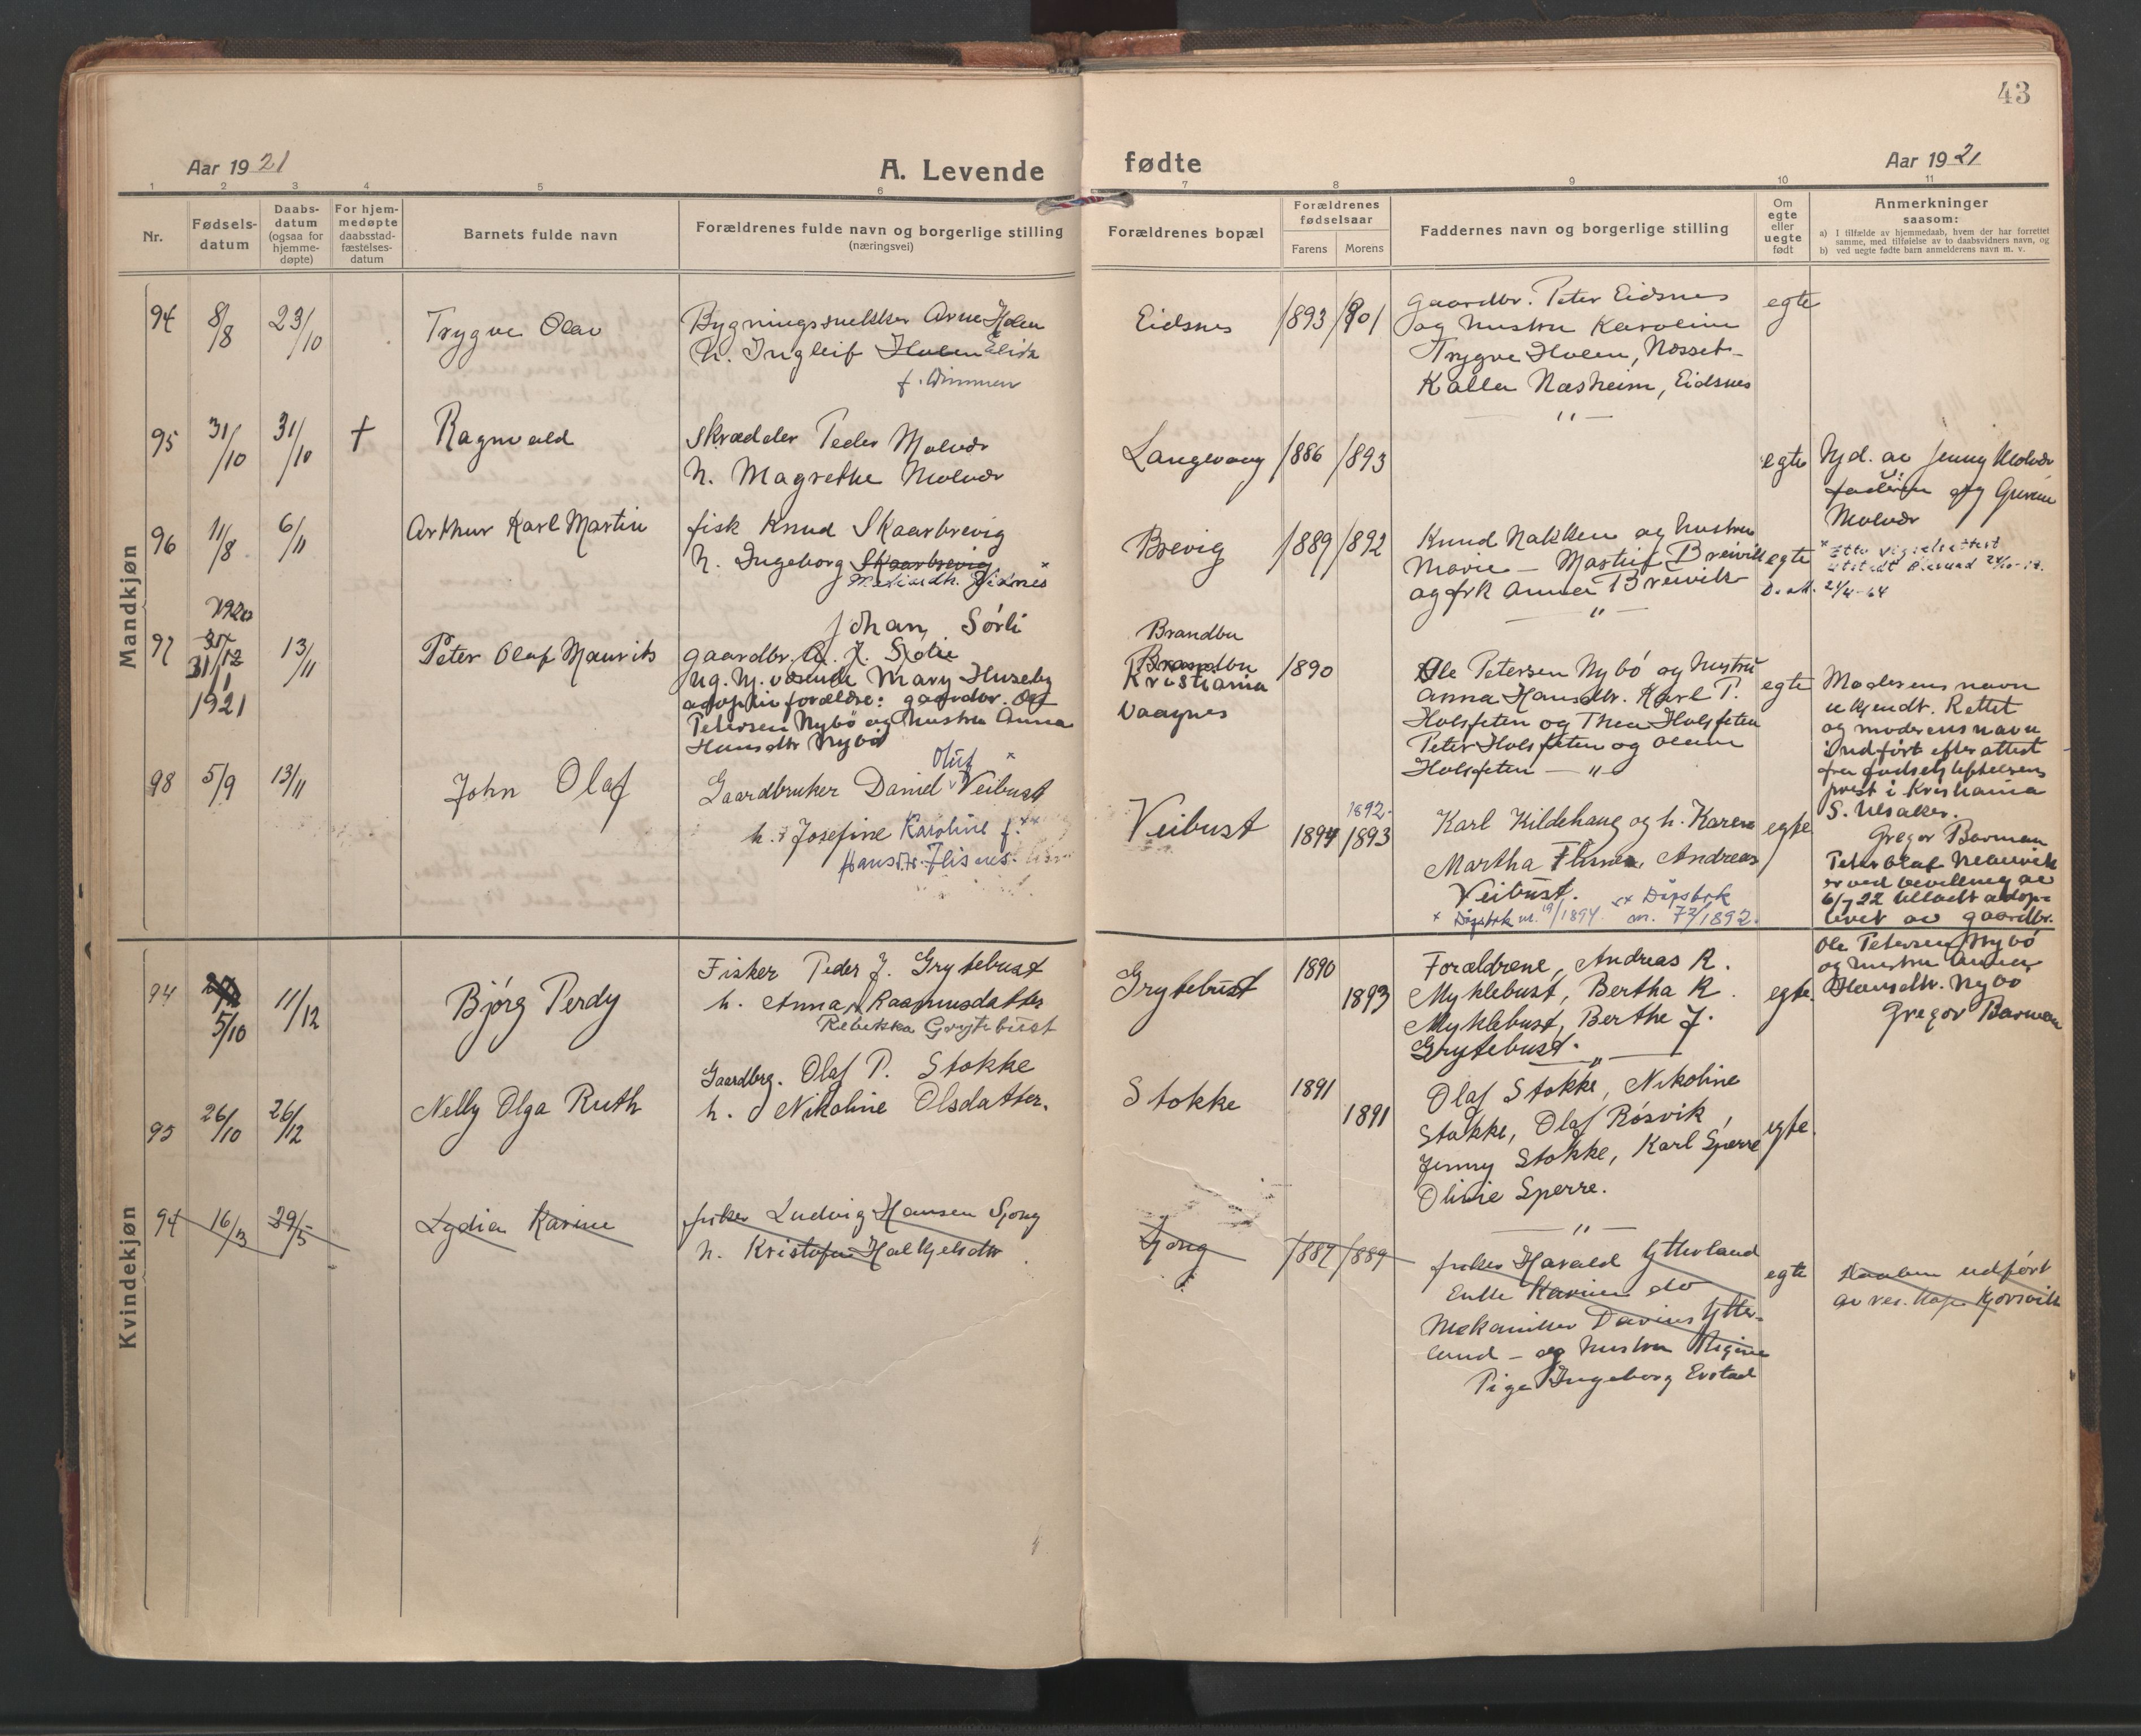 43
Aar 1921
A. Levende fødte
Aar 1921
1 2 3 4 5 6 7 8 9 10 11
Nr.
Fødsels-
datum
Daabs-
datum
(ogsaa for
hjemme-
døpte)
For hjem-
medøpte
daabsstad-
fæstelses-
datum
Barnets fulde navn
Forældrenes fulde navn og borgerlige stilling
(næringsvei)
Forældrenes bopæl
Forældrenes
fødselsaar
Farens Morens
Faddernes navn og borgerlige stilling
Om
egte
eller
uegte
født
Anmerkninger
saasom:
a) I tilfælde av hjemmedaab, hvem der har forrettet
samme, med tilføielse av to daabsvidners navn, og
b) ved uegte fødte barn anmelderens navn m. v.
Mandkjøn
94 8/8 23/10
Trygve Olav
Bygningssnekker Arne Holen
h. Ingleif Holen Elida
f. Dimmen
Eidsnes
1893 1901
Gaardbr. Peter Eidsnes
og hustru Karoline
Trygve Holen, Nesset-
Kalla Næsheim, Eidsnes
— " —
egte
95 31/10 31/10 +
Ragnvald
Skrædder Peder Molvær
h. Magrethe Molvær
Langevaag
1886 1893
egte
Hjd. av Jenny Molvær
og
Molvær
96 11/8 6/11
Arthur Karl Martin
fisk Knud Skaarbrevig
h. Ingeborg Skaarbrevig ×
Brevig
1889 1892
Knud Nakken og hustru
Marie — Mastuf Breivik
og frk Anna Breivik
— " —
egte
D.o.M.
24/4-64
1920
97 31/12 13/11
31/12
1921
Peter Olaf Maurits
Johan Sørli
gaardbr. A. J. Solie
ug. hj. værende Mary Huseby
adoptivforældre: gaardbr. Ole
Petersen Nybö og hustru Anna
Hansdtr Nybö
Brandbu
Brandbu
Kristiania
Vaagnes
1890
Ole Petersen Nybö og hustru
Anna Hansdtr. Karl P.
Holsfeten og Thea Holsfeten
Peter Holsfeten og
Holsfeten — " —
egte
Moderens navn
ukjendt. Rettet
og moderens navn
indført efter attest
fra fødselsstiftelsens
prest i Kristiania
S. Ulsaker.
Gregor Barman
Peter Olaf Maurits
er ved bevilling av
6/7 22 tilladt adop-
tivet av gaardbr.
Ole Petersen Nybö
og hustru Anna
Hansdtr. Nybö
Gregor Barman
98 5/9 13/11
John Olaf
Oluf ×
Gaardbruker Daniel Veibust
h. Josefine Karoline f. ××
Hansdtr. Flisnes.
Veibust
1892.
1894 1893
Karl Kildehaug og h. Karen
Martha Flisnes, Andreas
Veibust.
×× Dåpsbok
× Dåpsbok nr. 19/1894. nr. 72/1892.
egte
Kvindekjøn
94
5/10 11/12
Bjørg Perdy
Fisker Peder J. Grytebust
h. Anna Rasmusdatter
Rebekka Grytebust
Grytebust
1890
1893
Forældrene, Andreas R.
Myklebust, Bertha R.
Myklebust, Berthe J.
Grytebust.
— " —
egte.
95 26/10 26/12
Nelly Olga Ruth
Gaardbrg. Olaf P. Stokke
h. Nikoline Olsdatter.
Stokke
1891
1891
Olaf Stokke, Nikoline
Stokke, Olaf Røsvik,
Jenny Stokke, Karl Sperre
Olivie Sperre.
— " —
egte.
94 16/3 29/5
Lydia Karine
fisker Ludvig Hansen Gjong
h. Kristofa Halkjelsdtr
Gjong
1887 1889
fisker Harald Ytterland
Enke Karine do
Mekaniker Darius Ytter-
land — og hustru Regine
Pige Ingeborg Erstad
egte
Daaben udført
av res. kap. Gjørsvik